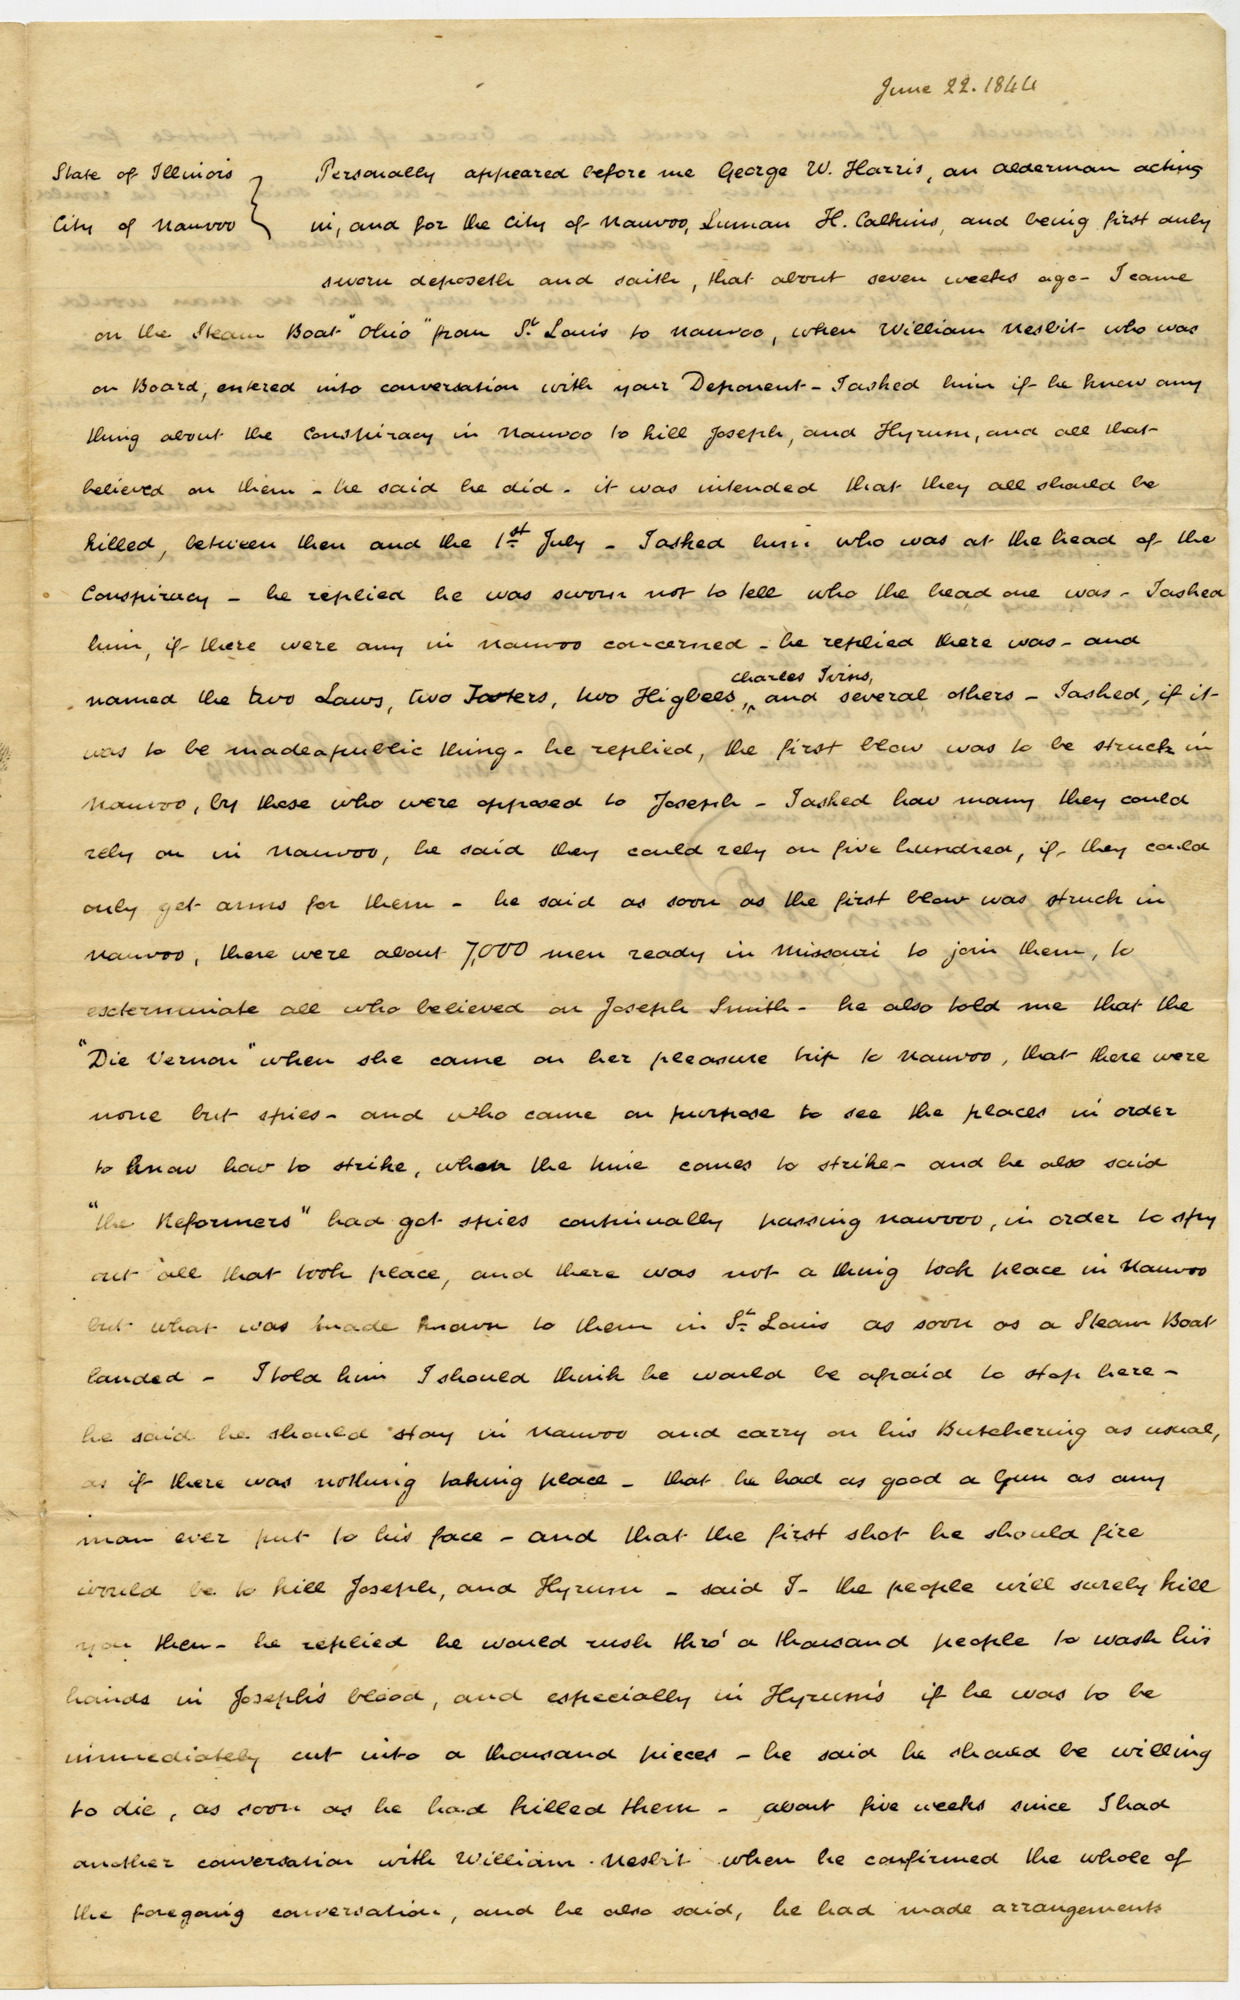 June 22. 1844
State of Illinois } Personally appeared before me George W. Harris, an alderman acting
City of Nauvoo } in, and for the City of Nauvoo, Luman H. Calkins, and being first duly
sworn deposeth and saith, that about seven weeks ago - I came
on the Steam Boat "Ohio" from St. Louis to Nauvoo, when William Nesbit who was
on Board, entered into conversation with your Deponent - I asked him if he knew any
thing about the Conspiracy in Nauvoo to kill Joseph, and Hyrum, and all that
believed on them - he said he did - it was intended that they all should be
killed, between then and the 1st July - I asked him who was at the head of the
Conspiracy - he replied he was sworn not to tell who the head one was - I asked
him, if there were any in Nauvoo concerned - he replied there was - and
Charles Ivins,
named the two Laws, two Fosters, two Higbees, ^ and several others - I asked, if it
was to be made a public thing - he replied, the first blow was to be struck in
Nauvoo, by those who were opposed to Joseph - I asked how many they could
rely on in Nauvoo, he said they could rely on five hundred, if they could
only get arms for them - he said as soon as the first blow was struck in
Nauvoo, there were about 7,000 men ready in Missouri to join them, to
exterminate all who believed on Joseph Smith - he also told me that the
"Die Vernon" when she came on her pleasure trip to Nauvoo, that there were
none but spies - and who came on purpose to see the places in order
to know how to strike, when the time comes to strike - and he also said
"the Reformers" had got spies continually passing Nauvoo, in order to spy
out all that took place, and there was not a thing took place in Nauvoo
but what was made known to them in St. Louis as soon as a Steam Boat
landed - I told him I should think he would be afraid to stop here -
he said he should stay in Nauvoo and carry on his Butchering as usual,
as if there was nothing taking place - that he had as good a Gun as any
man ever put to his face - and that the first shot he should fire
would be to kill Joseph, and Hyrum - said I - the people will surely kill
you then - he replied he would rush thro' a thousand people to wash his
hands in Joseph's blood, and especially in Hyrum's if he was to be
immediately cut into a thousand pieces - he said he should be willing
to die, as soon as he had killed them - about five weeks since I had
another conversation with William Nesbit when he confirmed the whole of
the foregoing conversation, and he also said, he had made arrangements